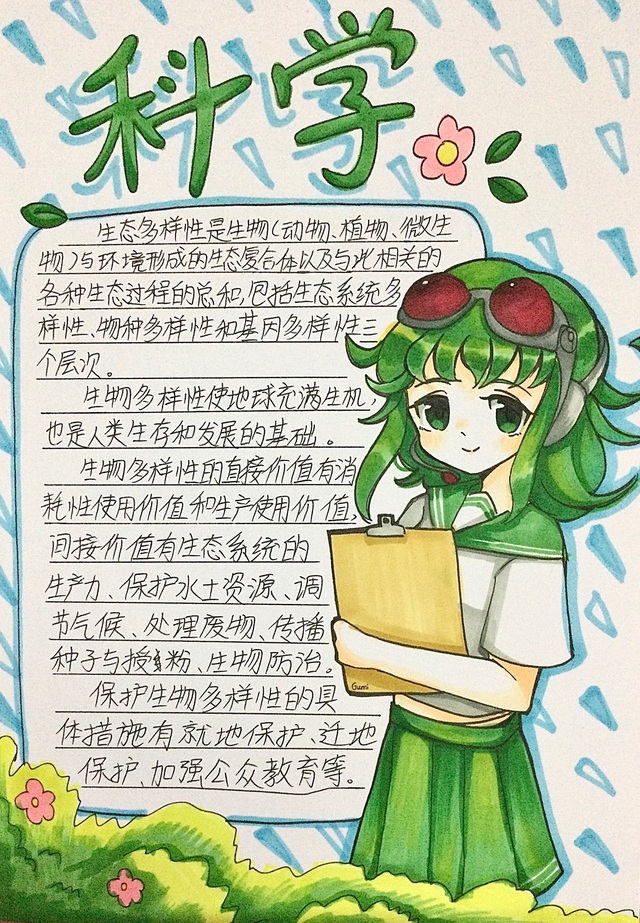 科学
生态多样性是生物(动物、植物、微生
物)与环境形成的生态复合体以及与此相关的
各种生态过程的总和,包括生态系统多
样性、物种多样性和基因多样性三
个层次。
生物多样性使地球充满生机,
也是人类生存和发展的基础。
生物多样性的直接价值有消
耗性使用价值和生产使用价值,
间接价值有生态系统的
生产力、保护水土资源、调
节气候、处理废物、传播
种子与授粉、生物防治。
保护生物多样性的具
体措施有就地保护、迁地
保护、加强公众教育等。
Gumi